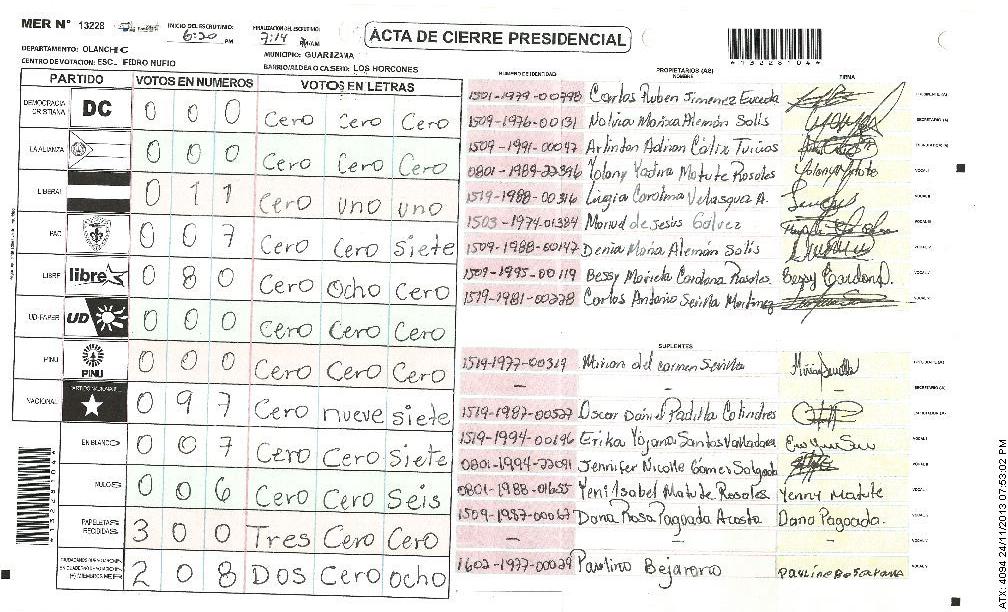 MER N° 13228
INICIO DEL ESCRUTINIO: 6:20 PM
FINALIZACION DEL ESCRUTINIO: 7:14 PM/AM
ACTA DE CIERRE PRESIDENCIAL
*13228104*
DEPARTAMENTO: OLANCHO
MUNICIPIO: GUARIZAMA
CENTRO DE VOTACION: ESC. FIDRO NUFIO
BARRIO/ALDEA O CASERIO: LOS HORCONES
PARTIDO VOTOS EN NUMEROS VOTOS EN LETRAS
DEMOCRACIA CRISTIANA DC 0 0 0 Cero Cero Cero
LA ALIANZA 0 0 0 Cero Cero Cero
LIBERAL 0 1 1 Cero uno uno
PAC 0 0 7 Cero Cero siete
LIBRE libre 0 8 0 Cero Ocho Cero
UD-FAPER UD 0 0 0 Cero Cero Cero
PINU PINU 0 0 0 Cero Cero Cero
NACIONAL 0 9 7 Cero nueve siete
EN BLANCO 0 0 7 Cero Cero Siete
NULOS 0 0 6 Cero Cero Seis
PAPELETAS RECIBIDAS 3 0 0 Tres Cero Cero
2 0 8 DOS Cero ocho
NUMERO DE IDENTIDAD PROPIETARIOS (AS) NOMBRE FIRMA
1501-1979-00798 Carlos Ruben Jimenez Euceda
1509-1976-00131 Marixa Alemán Solís
1509-1991-00047 Adrian Cálix
0801-1989-22396 Yolany Yadira Matute Rosales Yolany Matute
1519-1988-00316 Ligia Carolina Velasquez A.
1503-1974-01384 de Jesús Gálvez
1509-1988-00147 Denia Maria Alemán Solís
1509-1995-00119 Bessy Marieta Cardona Rosales Bessy Cardona.
1519-1981-00228 Carlos Antonio Sevilla Martinez
SUPLENTES
1519-1977-00319 Mirian del carmen Sevilla
1519-1987-00527 Oscar Daniel Padilla Colindres
1519-1994-00196 Erika Yojana Santos
0801-1994-22091 Jennifer Nicolle Gómes Salgado
0801-1988-01655 Yeni Isabel Matute Rosales Yenny Matute
1509-1987-00067 Dana Rosa Pagoada Acosta Dana Pagoada.
1602-1977-00029 Paulino Bejarano
*13228104*
ATX: 4094 24/11/2013 07:53:02 PM